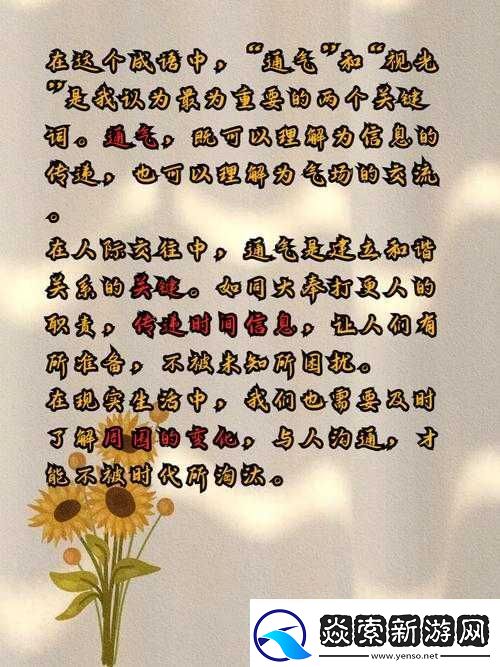 在这个成语中，“通气”和“视光
”是我认为最为重要的两个关键
词。通气，既可以理解为信息的
传递，也可以理解为气场的交流
。
在人际交往中，通气是建立和谐
关系的关键。如同大奉打更人的
职责，传递时间信息，让人们有
所准备，不被未知所困扰。
在现实生活中，我们也需要及时
了解周围的变化，与人沟通，才
能不被时代所淘汰。
焱索新游网
www.yenso.net